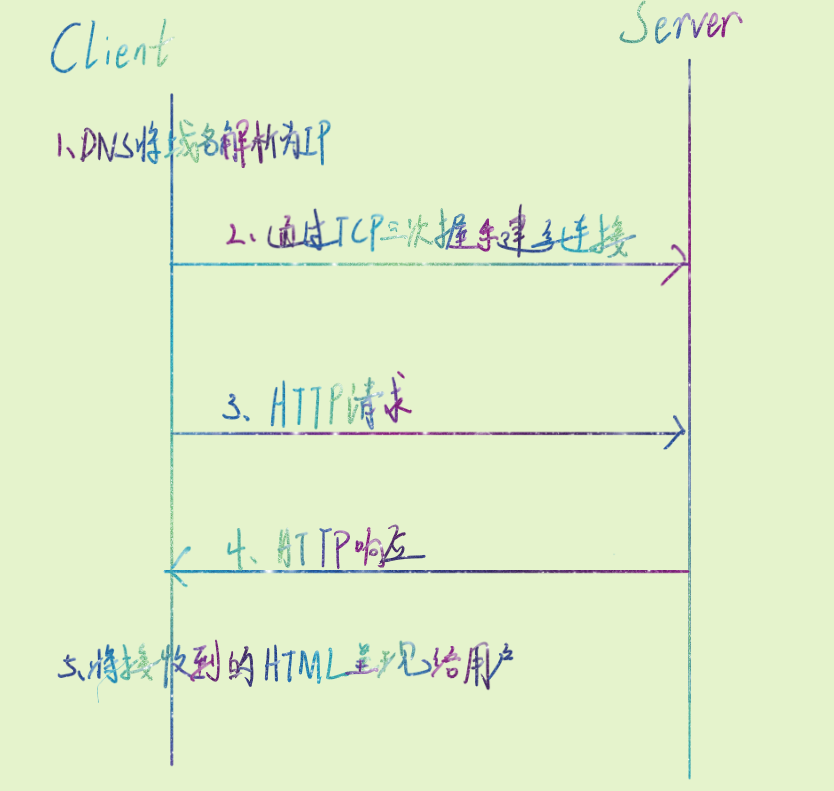 Client
Server
1、DNS将域名解析为IP
2、通过TCP三次握手建立连接
3、HTTP请求
4、HTTP响应
5、将接收到的HTML呈现给用户